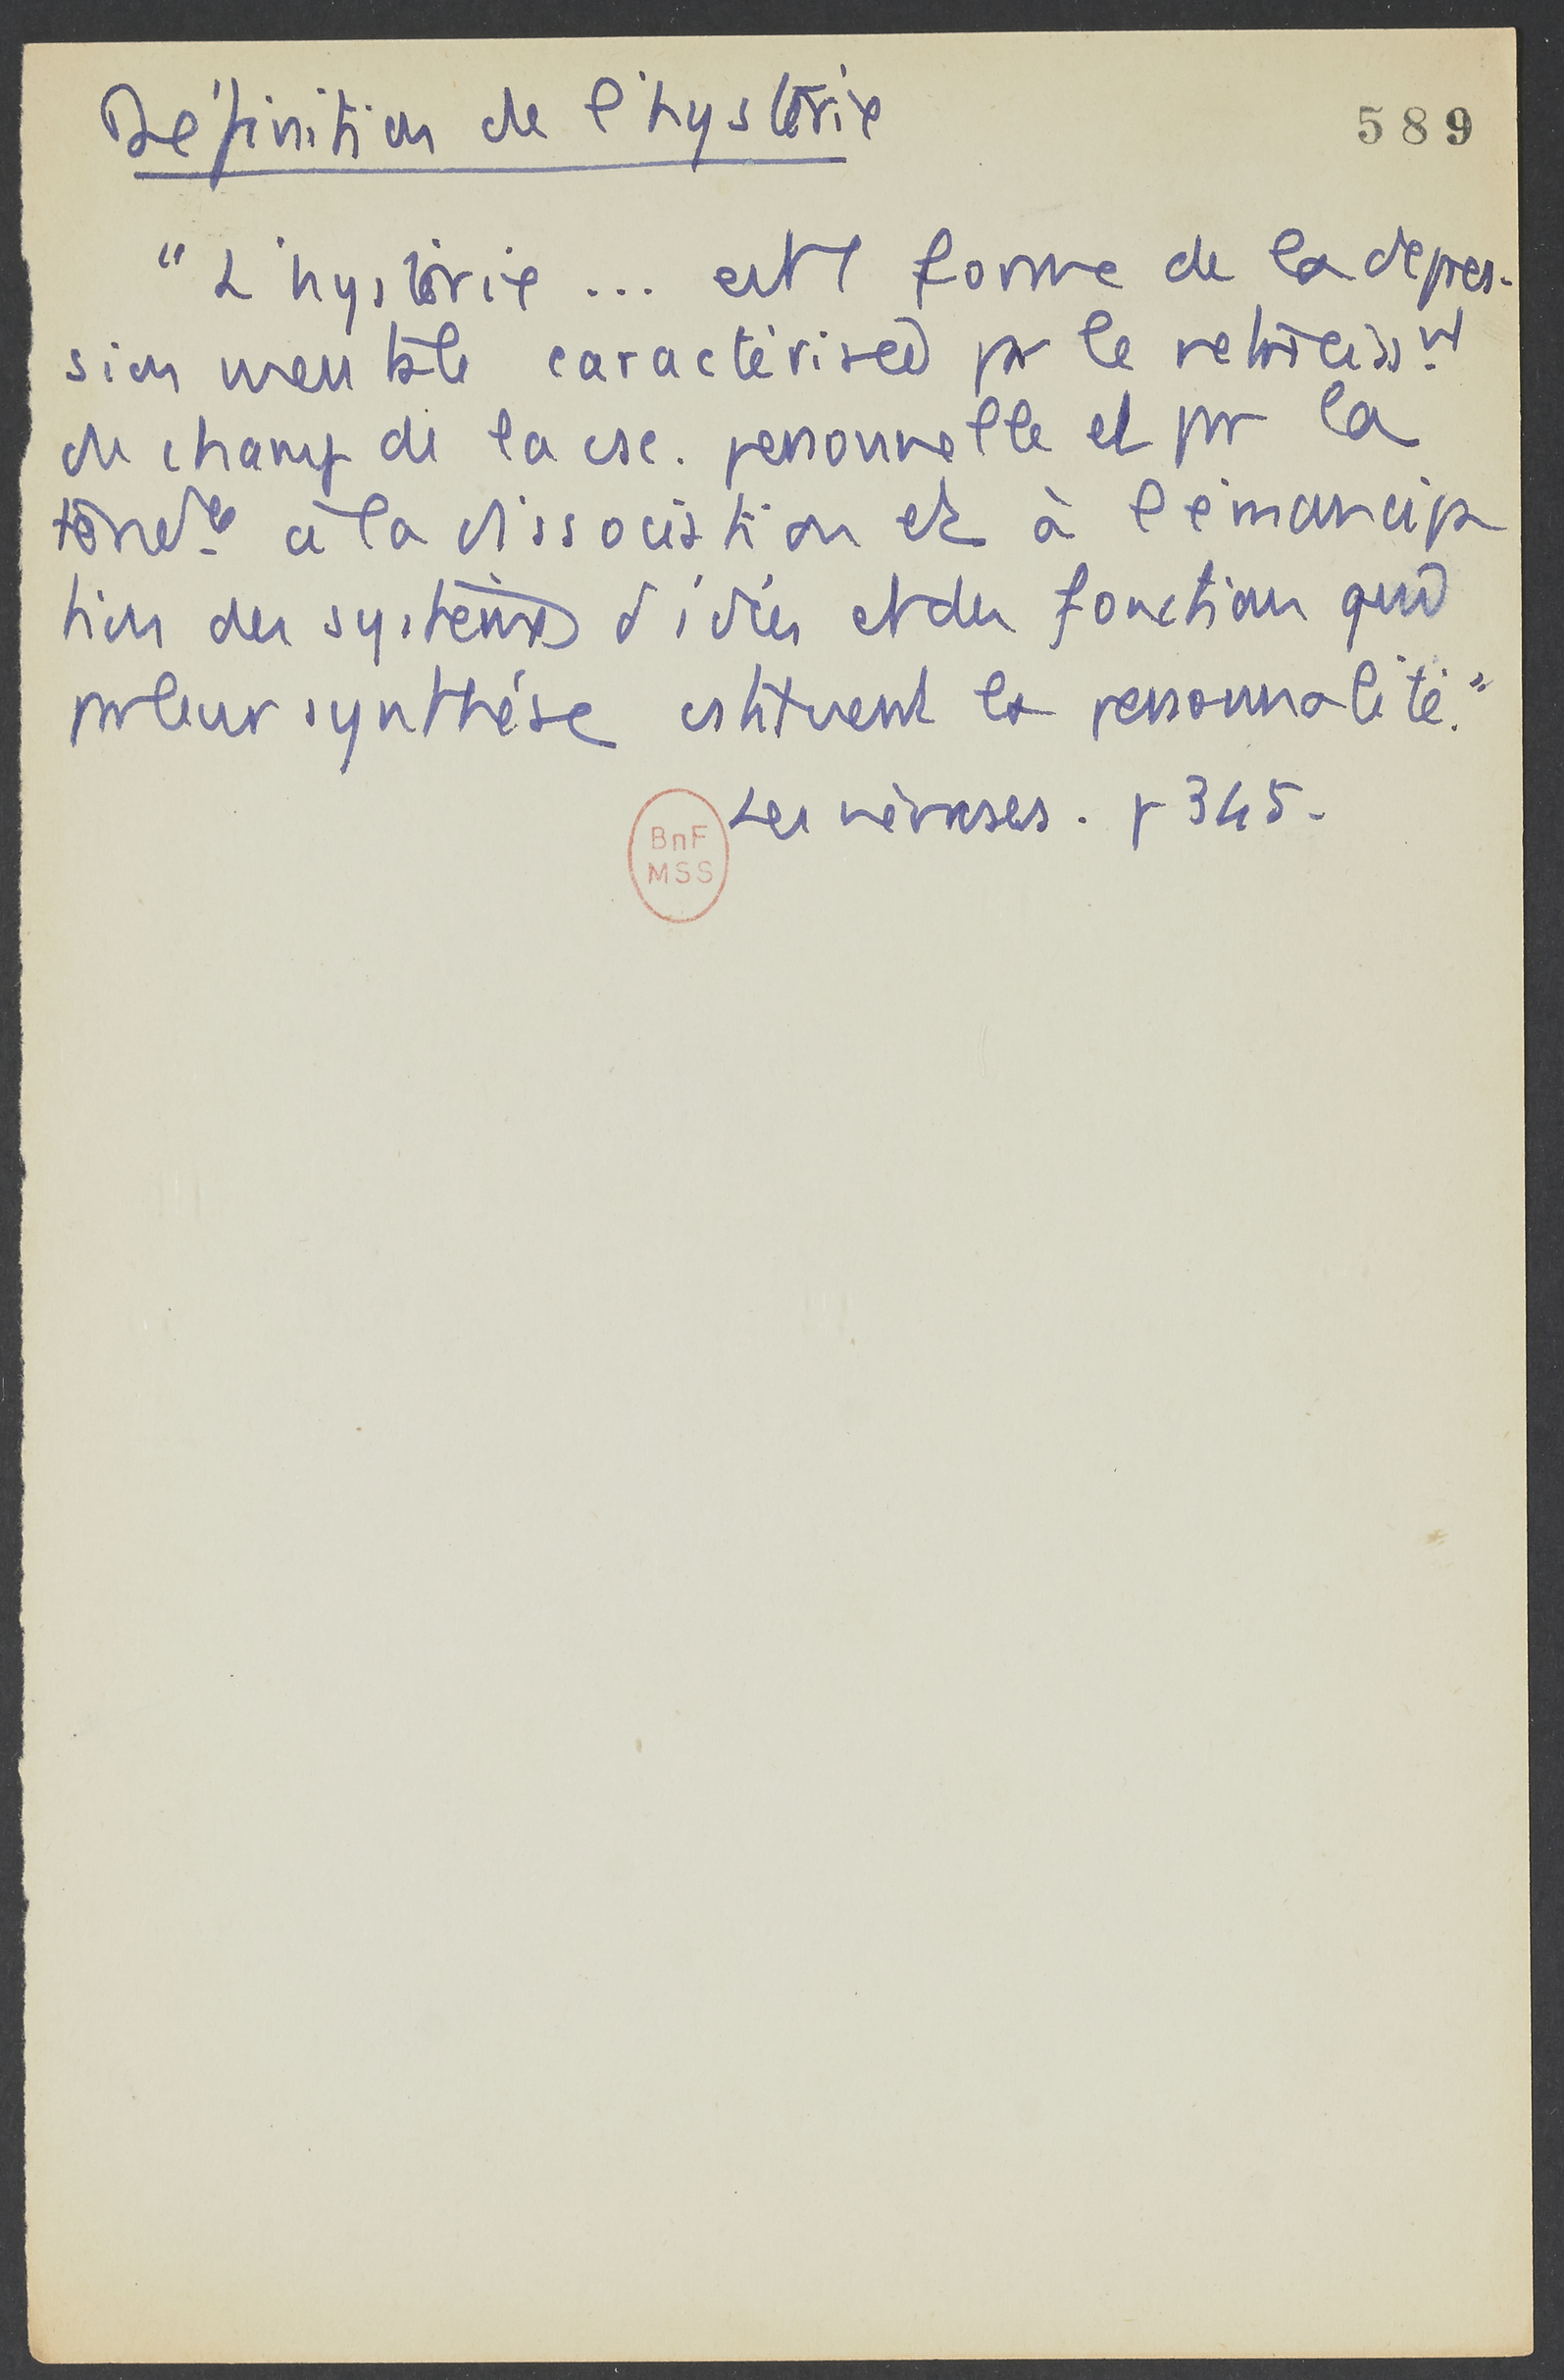 Définition de l'hystérie
589
"L'hystérie ... est 1 forme de la dépres-
sion mentale caractérisée pr le rétrécisst
du champ de la csc. personnelle et pr la
tendce à la dissociation et à l'émancipa
tion des systèmes d'idées et des fonctions qui
pr leur synthèse cstituent la personnalité."
Les névroses. p 345.
BnF
MSS